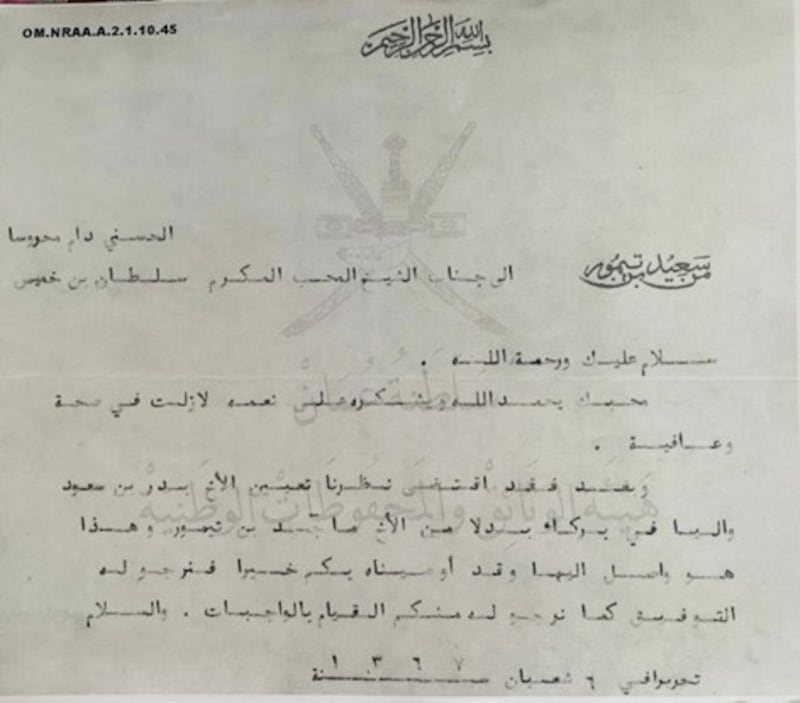 OM.NRAA.A.2.1.10.45
بسم الله الرحمن الرحيم
الحسني دام محروسا
من سعيد بن تيمور
الى جناب الشيخ المحب المكرم سلطان بن خميس
سلام عليك ورحمة الله .
محبك يحمد الله ويشكره على نعمه لازلت في صحة
وعافية .
وبعد فقد اقتضى نظرنا تعيين الأخ بدر بن سعود
واليا في بركاء بدلا من الأخ ماجد بن تيمور وهذا
هو واصل اليها وقد أوصيناه بكم خيرا فنرجو له
التوفيق كما نرجو له منكم القيام بالواجبات . والسلام
تحريرا في ٦ شعبان سنة ١٣٦٧
سلطنة عمان
هيئة الوثائق والمحفوظات الوطنية